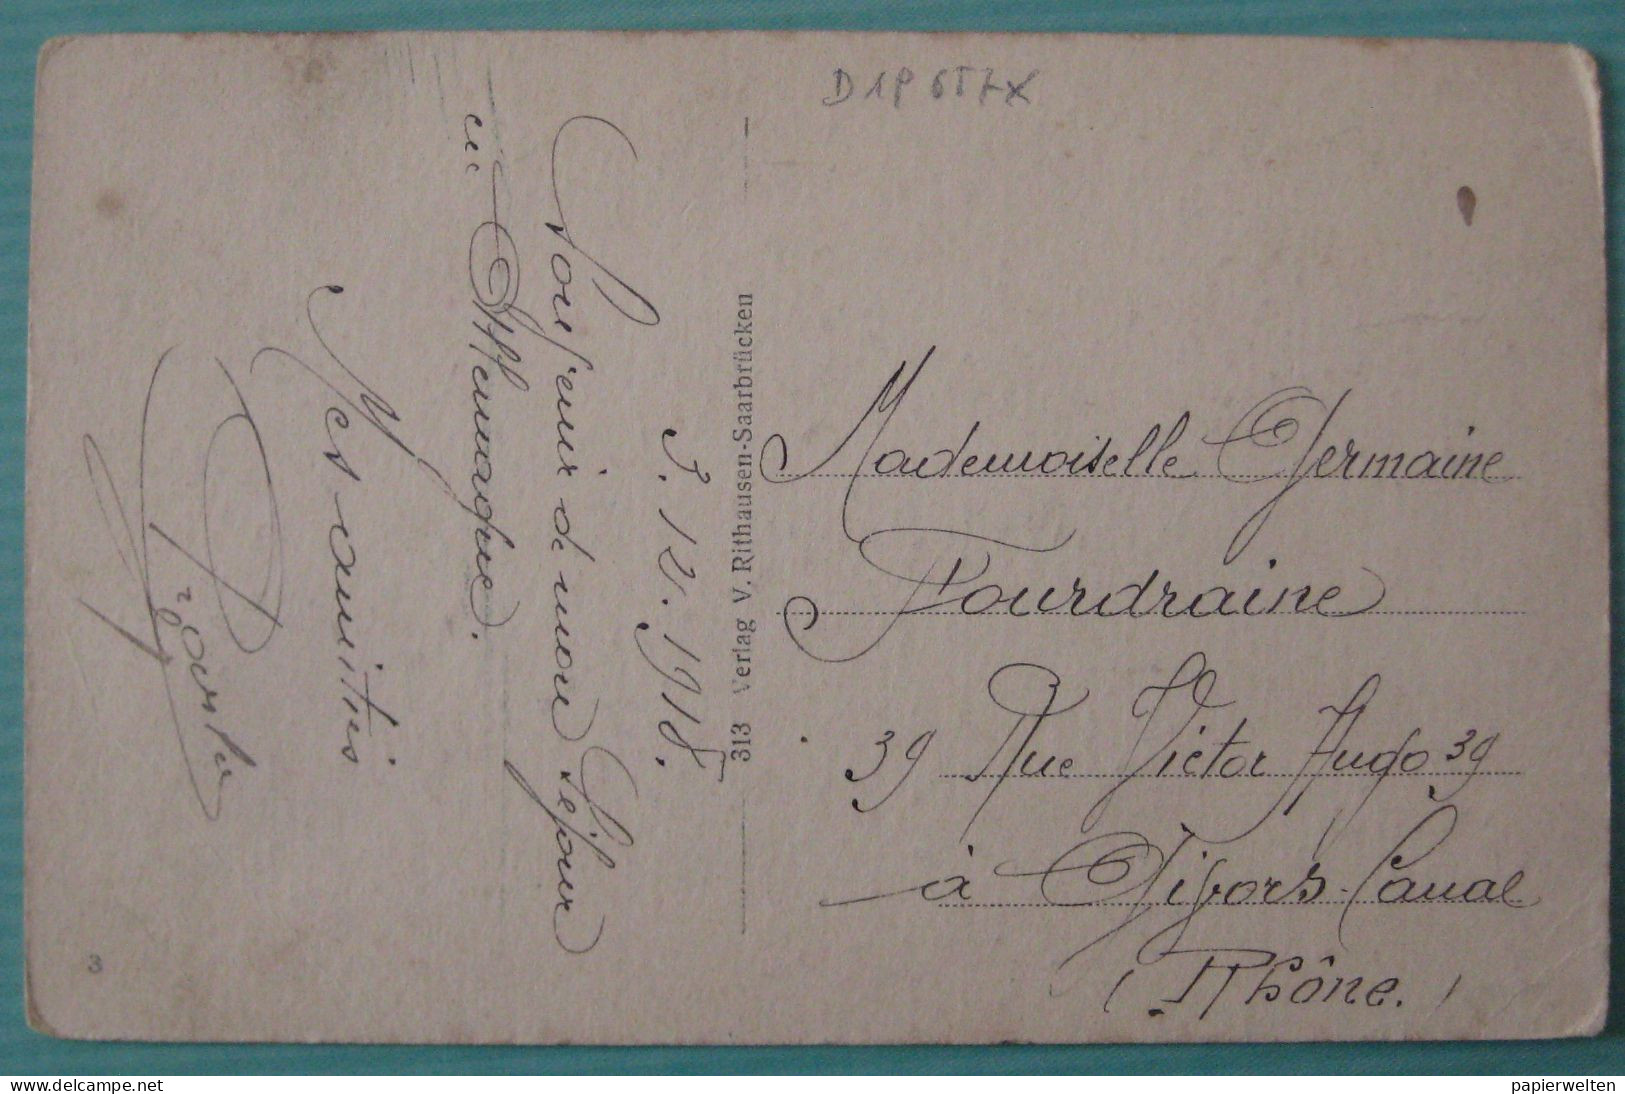 D1P 657X
3.12.1918.
Souvenir de mon Séjour
en Allemagne.
Mes amitiés
313 Verlag V. Rithausen-Saarbrücken
Mademoiselle Germaine
Fourdraine
39 Rue Victor Hugo 39
à Givors-Canal
(Rhône.)
3
Delcampe.net
papierwelten